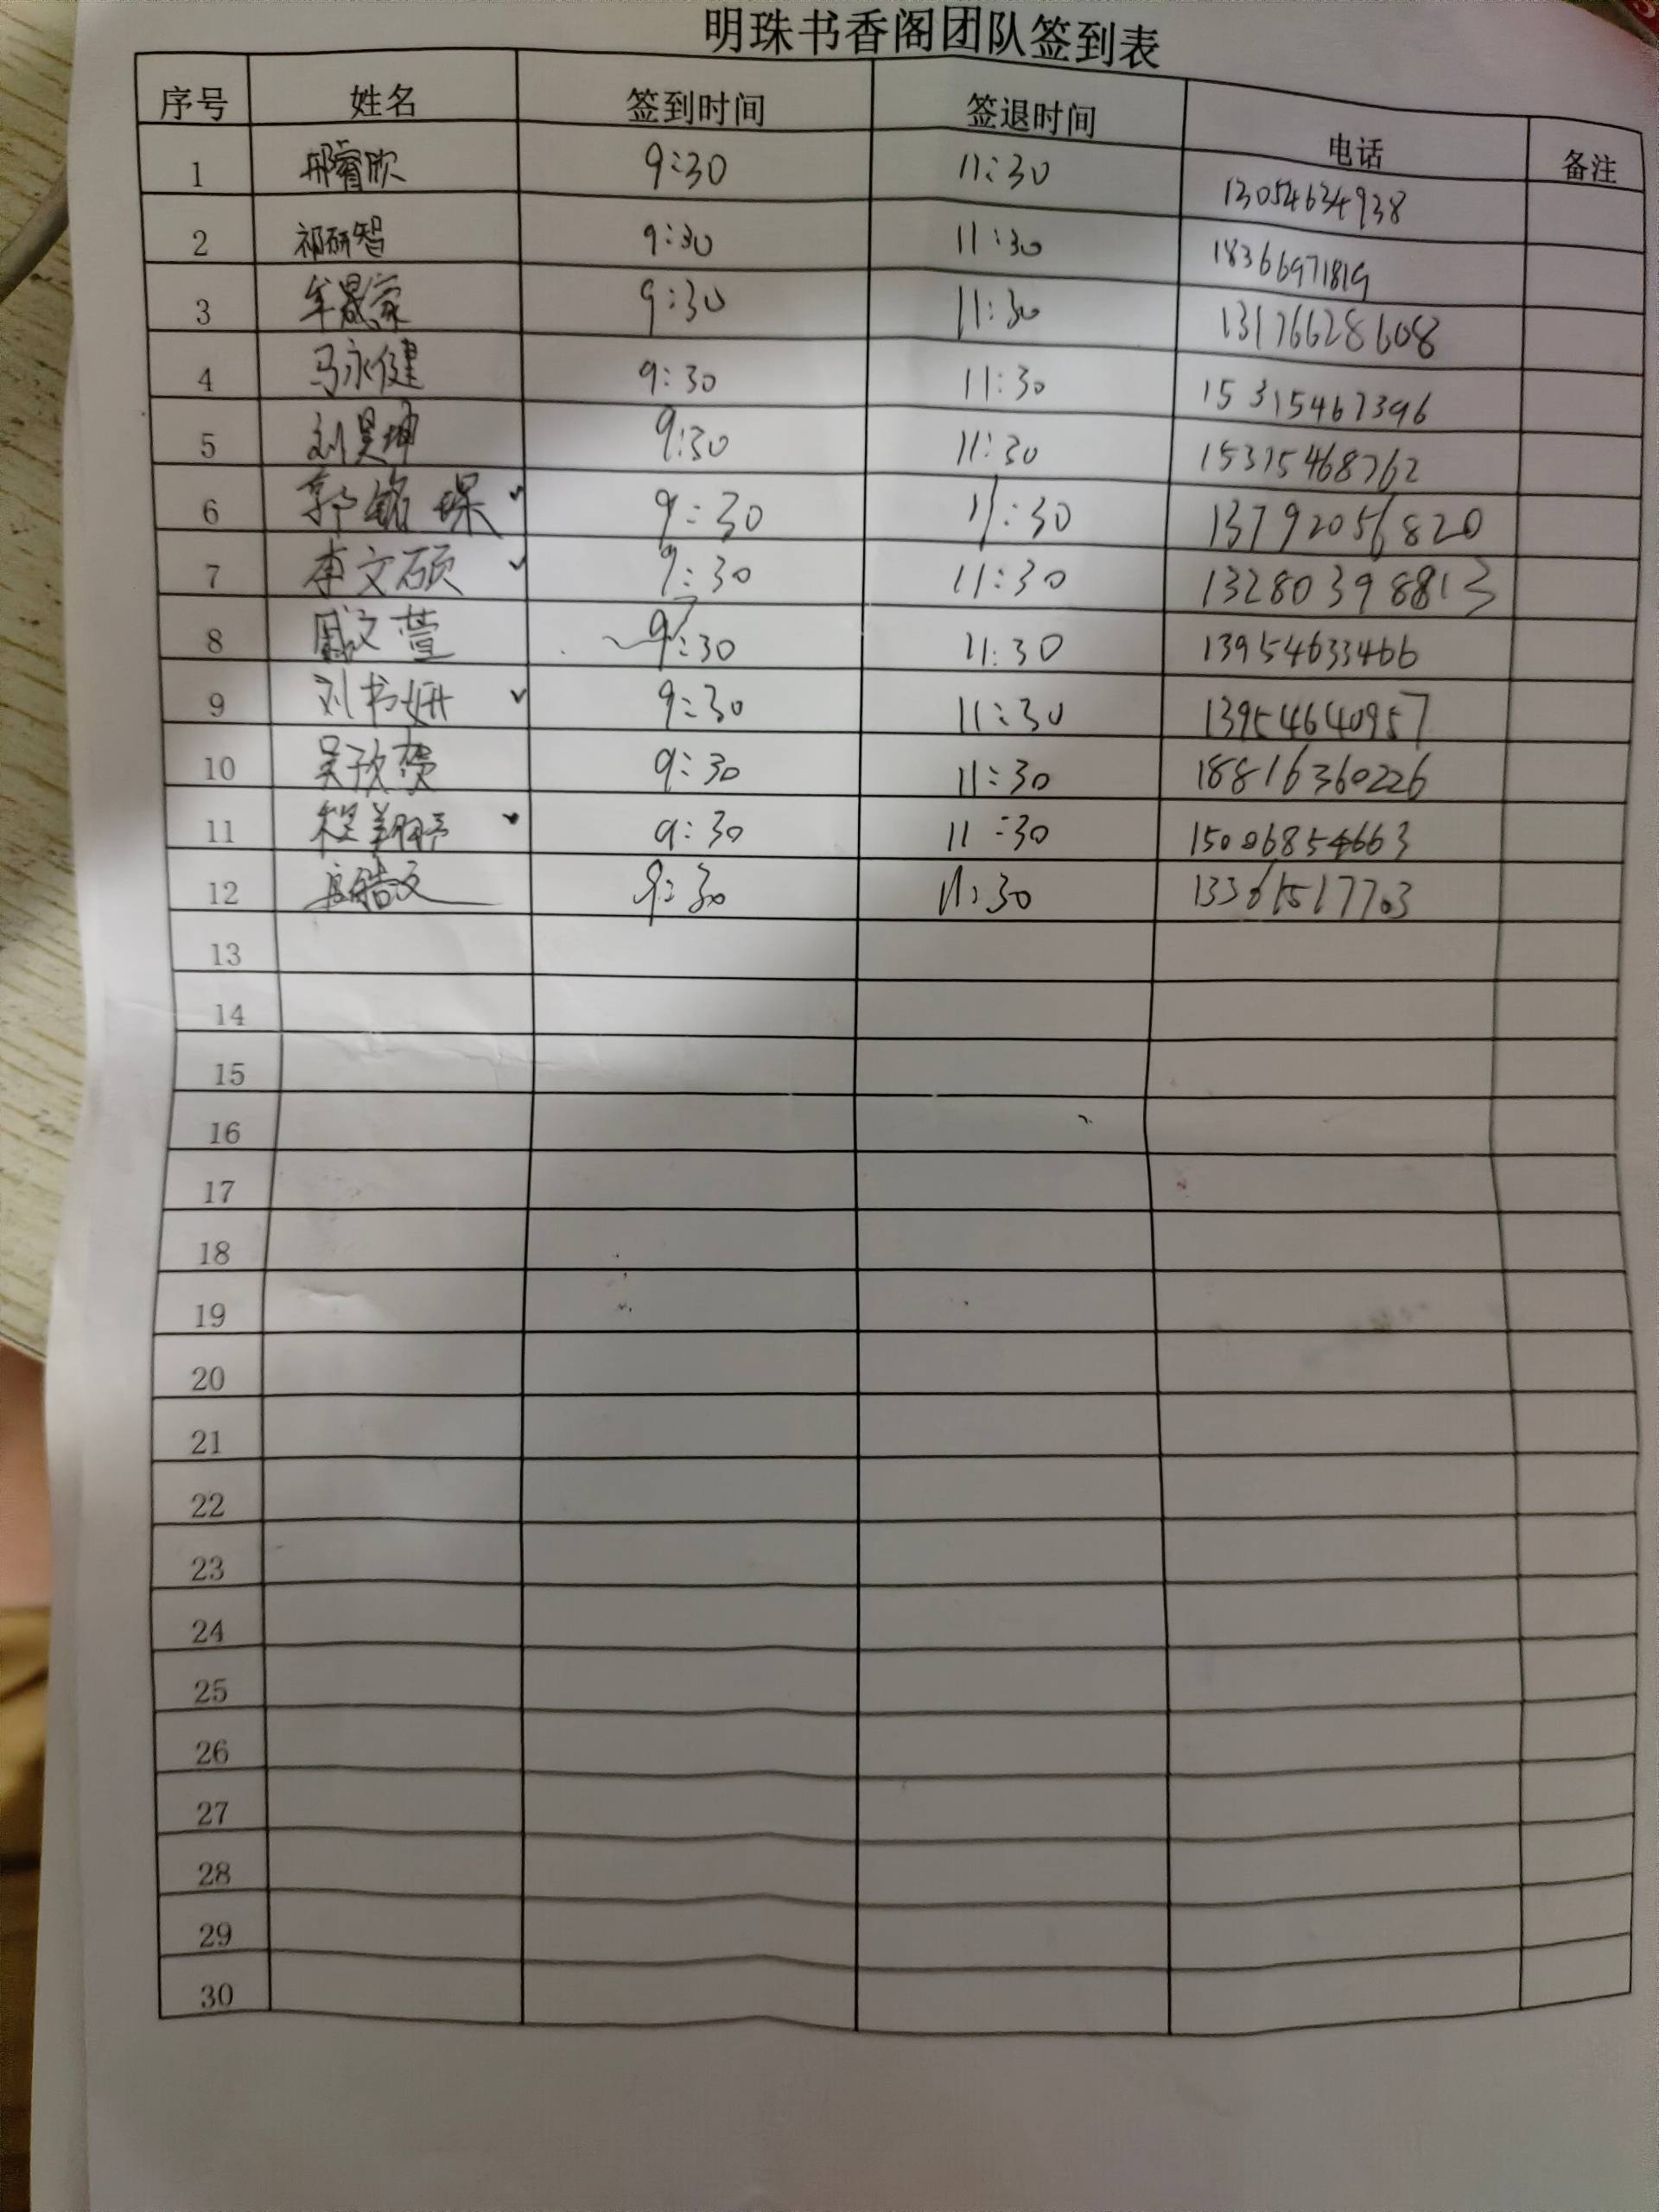 明珠书香阁团队签到表
序号 姓名 签到时间 签退时间 电话 备注
1 邢睿欣 9:30 11:30 13054634938
2 祁研智 9:30 11:30 18366971819
3 牟晟豪 9:30 11:30 13176628608
4 马永健 9:30 11:30 15315467396
5 刘昊坤 9:30 11:30 15315468762
6 郭铭琛 9:30 11:30 13792056820
7 李文硕 9:30 11:30 13280398813
8 周文萱 9:30 11:30 13954633466
9 刘书妍 9:30 11:30 13954640957
10 吴 9:30 11:30 18816360226
11 程翔宇 9:30 11:30 15006854663
12 9:30 11:30 13361517703
13
14
15
16
17
18
19
20
21
22
23
24
25
26
27
28
29
30